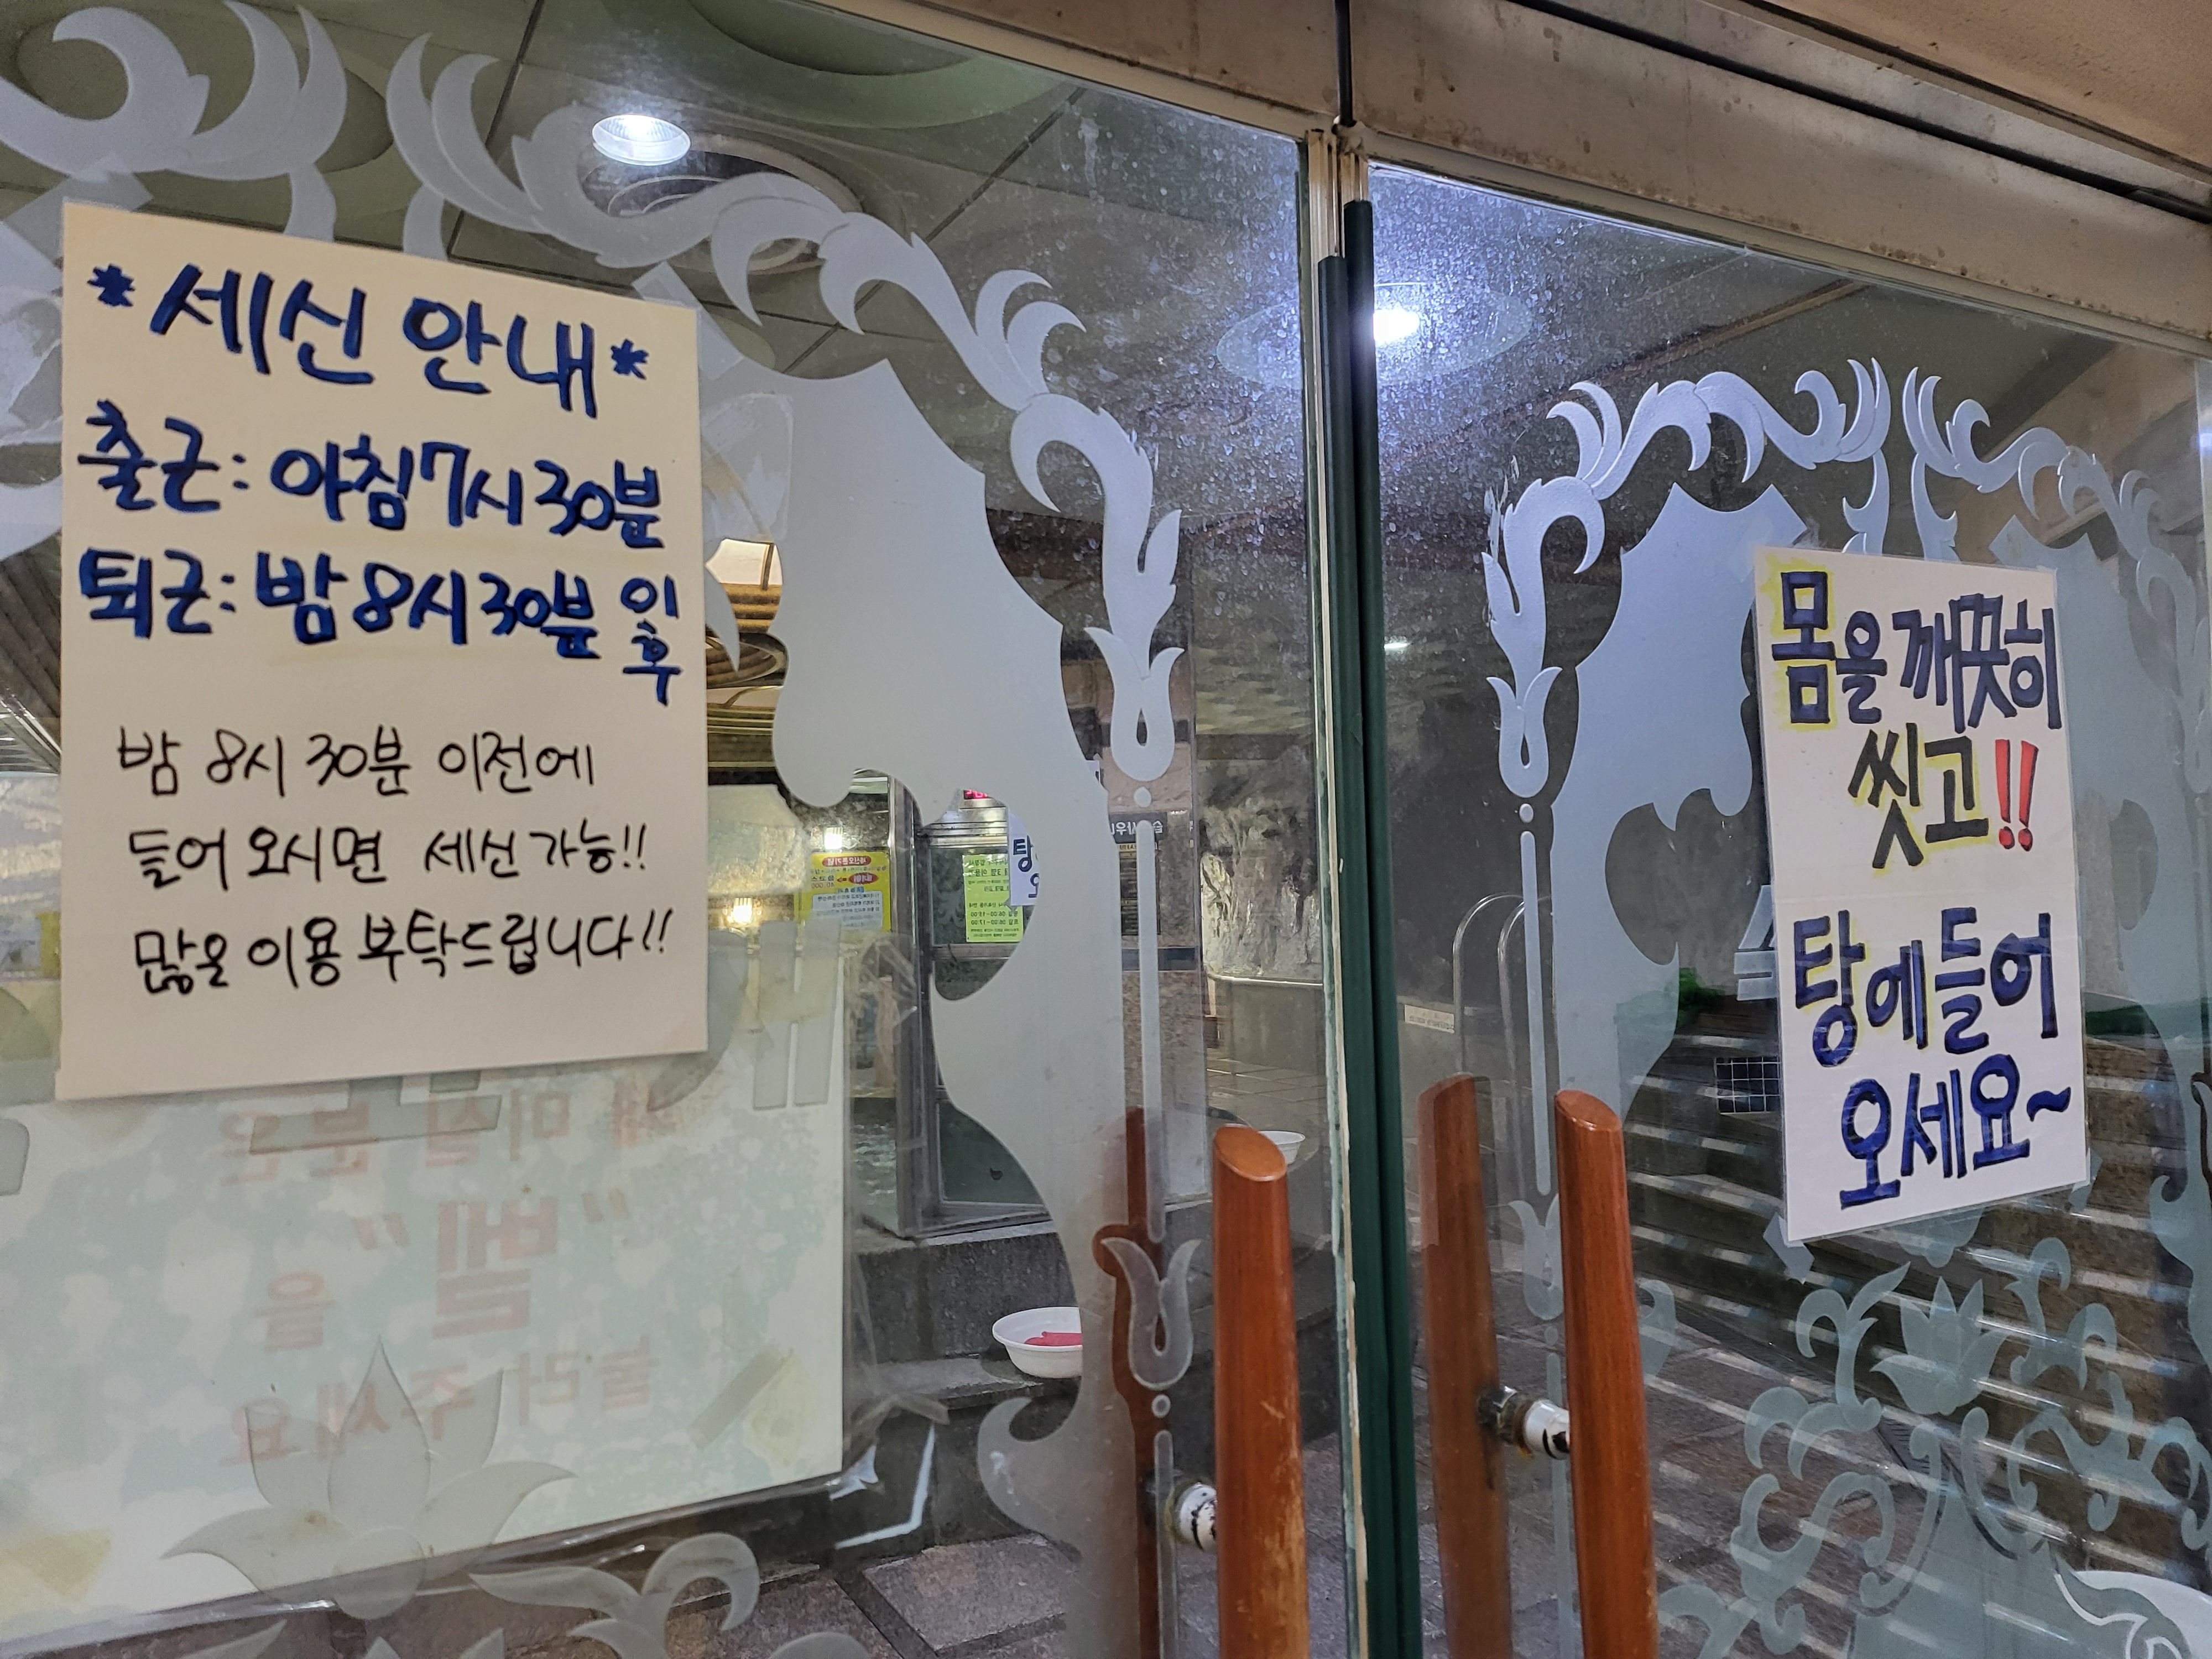 *세신 안내*
출근: 아침 7시 30분
퇴근: 밤 8시 30분 이후
밤 8시 30분 이전에
들어오시면 세신 가능!!
많은 이용 부탁드립니다!!
몸을 깨끗히
씻고!!
탕에 들어
오세요~
"벨"
을
눌러 주세요